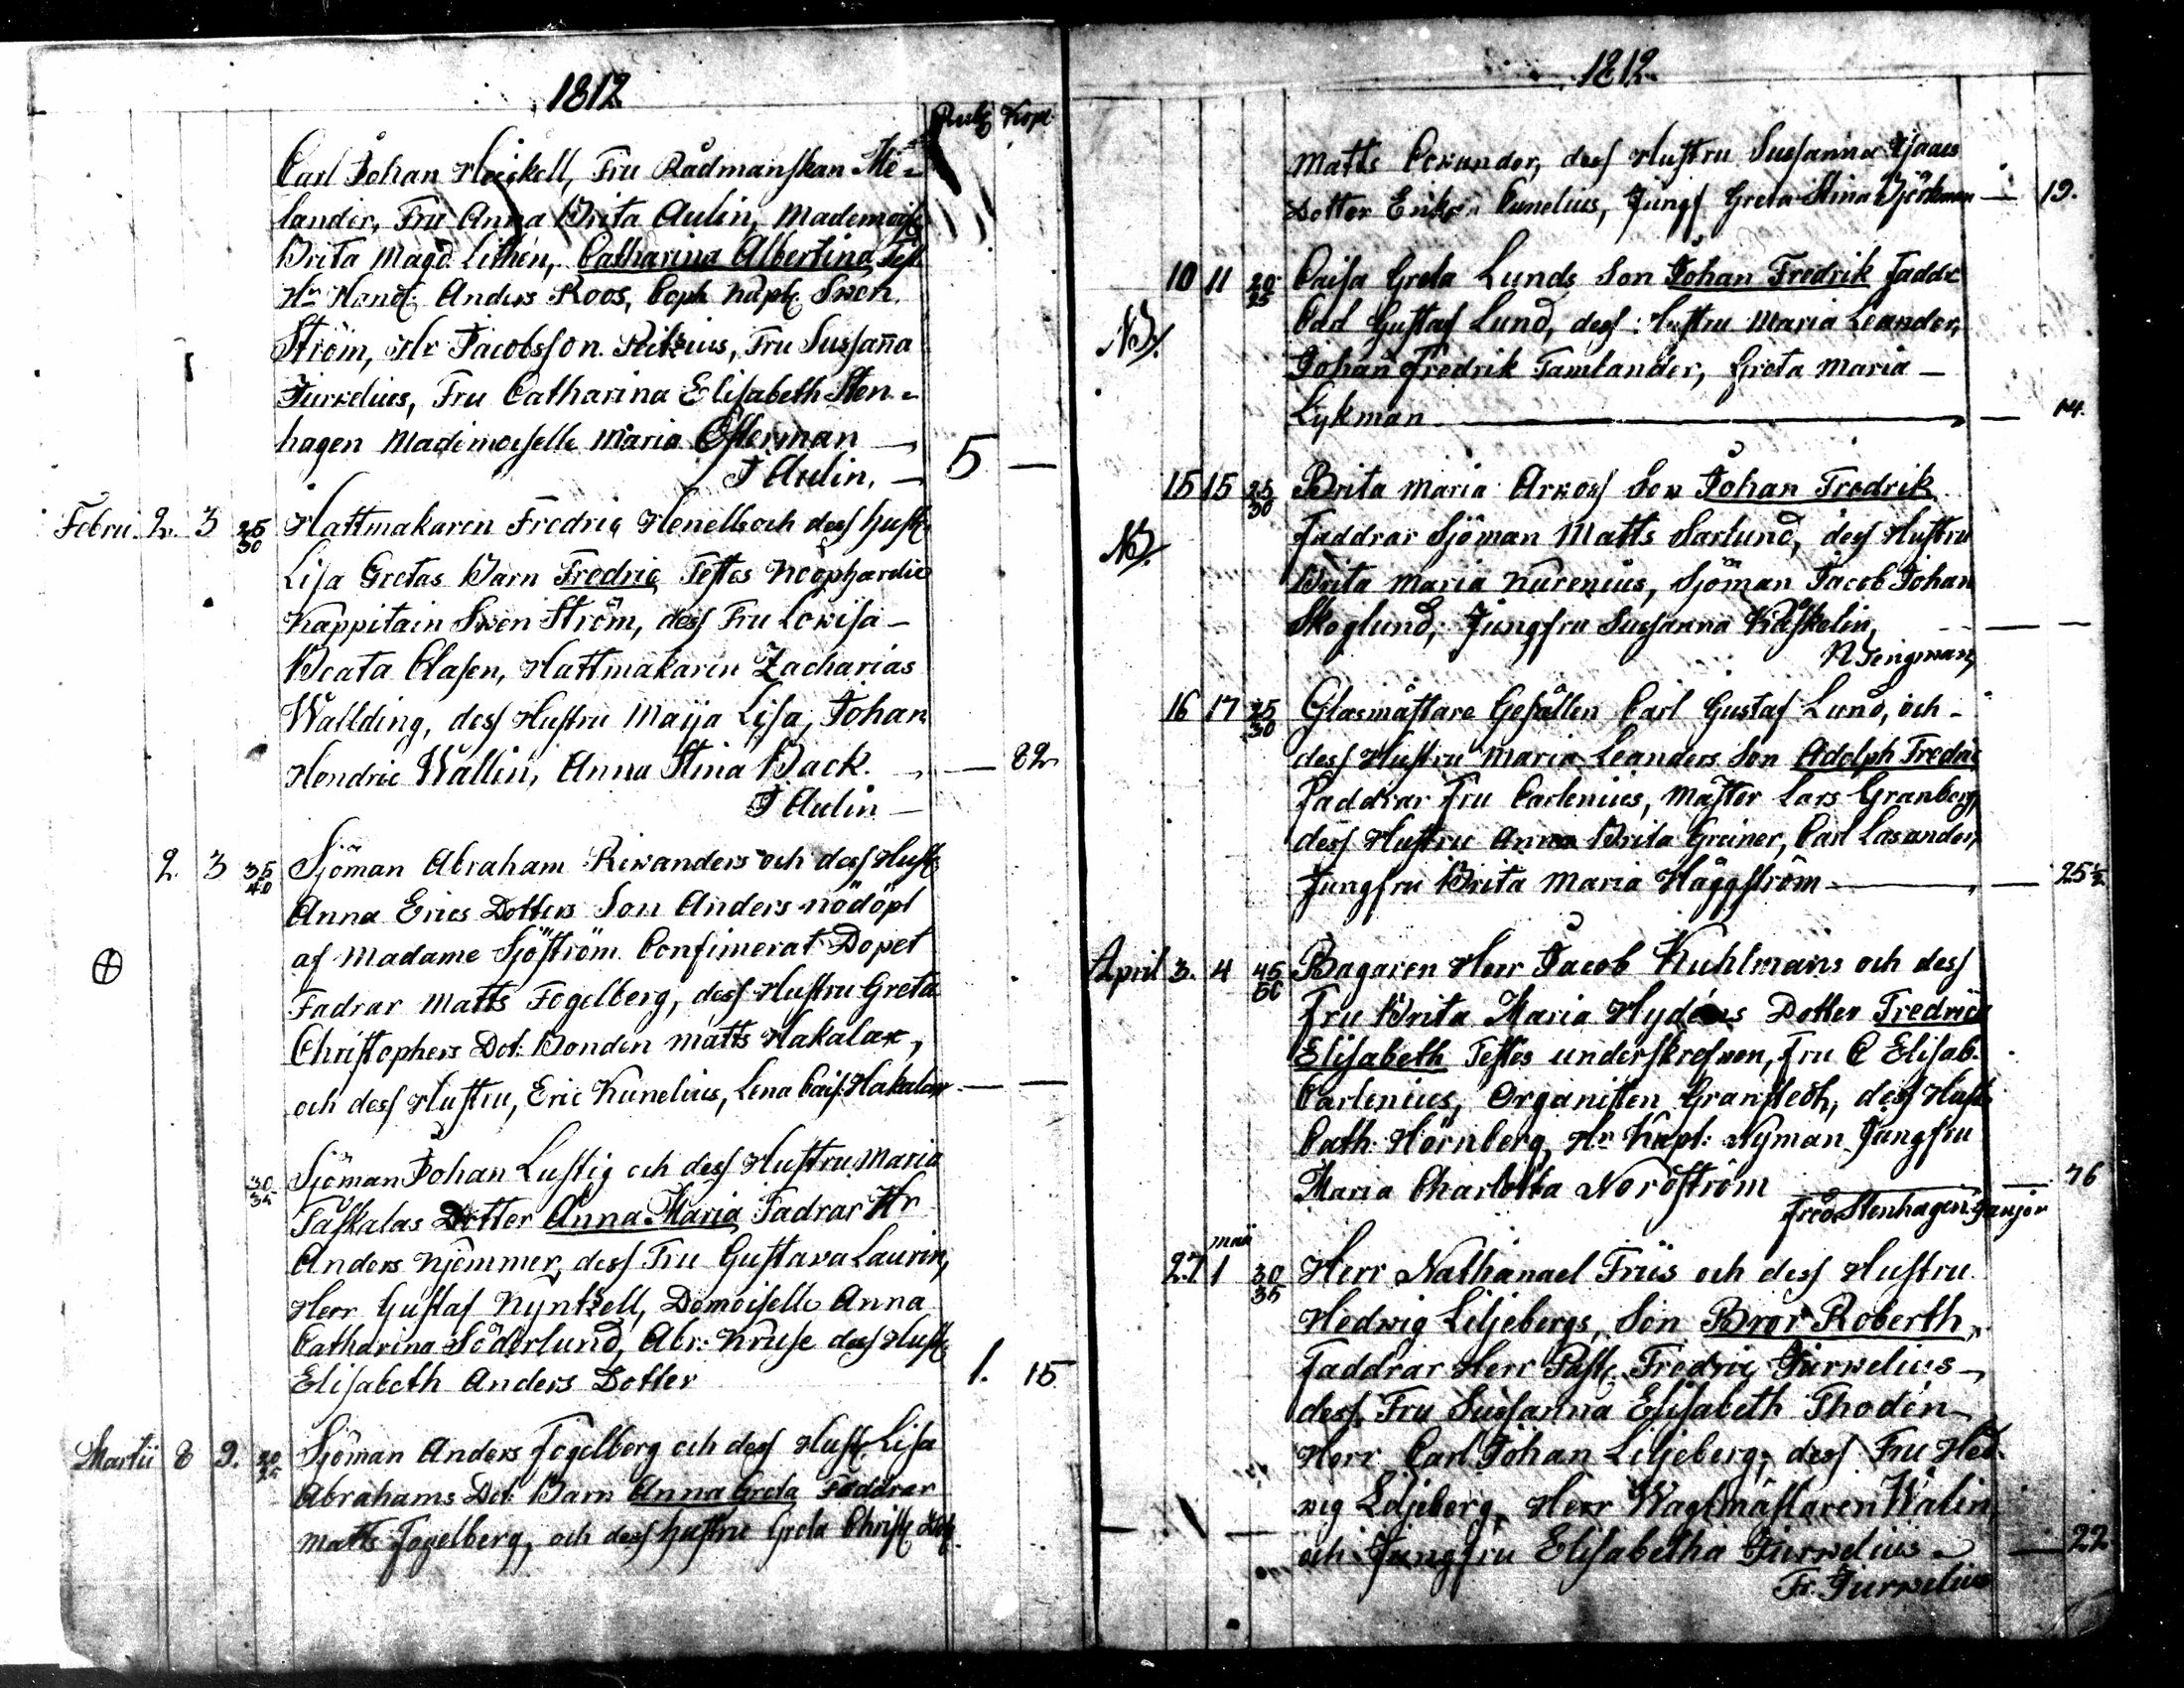 1812
Rub. Kop.
Carl Johan Heickell, Fru Rådmanskan Me=
lander, Fru Anna Brita Aulin, Mademois.
Brita Magd. Lithén, Catharina Albertina Test.
Hr Handl. Anders Roos, Coph. Kapt. Swen
Ström, Hr Jacobsson Rikius, Fru Sussanna
Jurvelius, Fru Catharina Elisabeth Sten=
hagen Mademoiselle Maria Österman — 5 —
J Aulin. —
Febru. 2. 3 25/30 Hattmakaren Fredric Henells och dess hust.
Lisa Gretas Barn Fredric Testes Koophardie
Kappitain Swen Ström, dess Fru Lowisa —
Beata Clasen, Hattmakaren Zacharias
Wallding, dess Hustru Maija Lisa, Johan
Hendric Wallin, Anna Stina Back. — — 82
J Aulin —
2. 3 35/40 Sjöman Abraham Rewanders och dess Hust.
Anna Erics Dotters Son Anders nödöpt
af Madame Sjöström Confimerat Dopet
Fadrar Matts Fogelberg, dess Hustru Greta
Christophers Dot. Bonden Matts Hakalax,
och dess Hustru, Eric Kunelius, Lena Cais. Hakalax — —
30/35 Sjöman Johan Lustig och dess Hustru Maria
Taskalas Dotter Anna Maria Fadrar Hr
Anders Njemmer, dess Fru Gustava Laurin,
Herr Gustaf Nyntzell, Demoiselle Anna
Catharina Söderlund, Abr. Kruse dess Hust.
Elisabeth Anders Dotter 1. 15
Martii 8 9. 20/25 Sjöman Anders Fogelberg och dess Hust. Lisa
Abrahams Dot. Barn Anna Greta Faddrar
Matts Fogelberg, och dess hustru Greta Christ. Dot.
1812
Matts dess Hustru Sussanna
Dotter Cunelius, Jungf Greta Stina Björkman — 19.
10 11 20/25 Caisa Greta Lunds Son Johan Fredrik Faddr
Carl Gustaf Lund, dess Hustru Maria Leander,
NB.
Johan Fredrik Tamlander, Greta Maria —
Lykman — — 14.
15 15 25/30 Brita Maria Son Johan Fredrik
Faddrar Sjöman Matts Sarlund, dess Hustru
NB.
Brita Maria Kurenius, Sjöman Jacob Johan
Skoglund, Jungfru Sussanna Kaskelin, — —
16 17 25/30 Glasmästare Gesällen Carl Gustaf Lund, och —
dess Hustru Maria Leanders Son Adolph Fredric
Faddrar Fru Carlenius, Mäster Lars Granberg,
dess Hustru Anna Brita Greiner, Carl Lasander,
Jungfru Brita Maria Häggström — — 25½
April 3. 4 45/50 Bagaren Herr Jacob Kuhlmans och dess
Fru Brita Maria Hydéns Dotter Fredrica
Elisabeth Testes underskrefven, Fru C Elisab.
Carlenius, Organisten Granstedt, dess Hust.
Cath. Hörnberg, Hr Kapt. Nyman Jungfru
Maria Charlotta Nordström — 76
Fred. Stenhagen Junjor
maii
27 1 30/35 Herr Nathanael Friis och dess Hustru
Hedwig Liljebergs, Son Bror Roberth,
Faddrar Herr Past. Fredric Jurvelius —
dess Fru Sussanna Elisabeth Thodén —
Herr Carl Johan Liljeberg, dess Fru Hed=
wig Liljeberg, Herr Wagtmästaren Walin
och Jungfru Elisabetha Jurvelius — — 22
Fr. Jurvelius